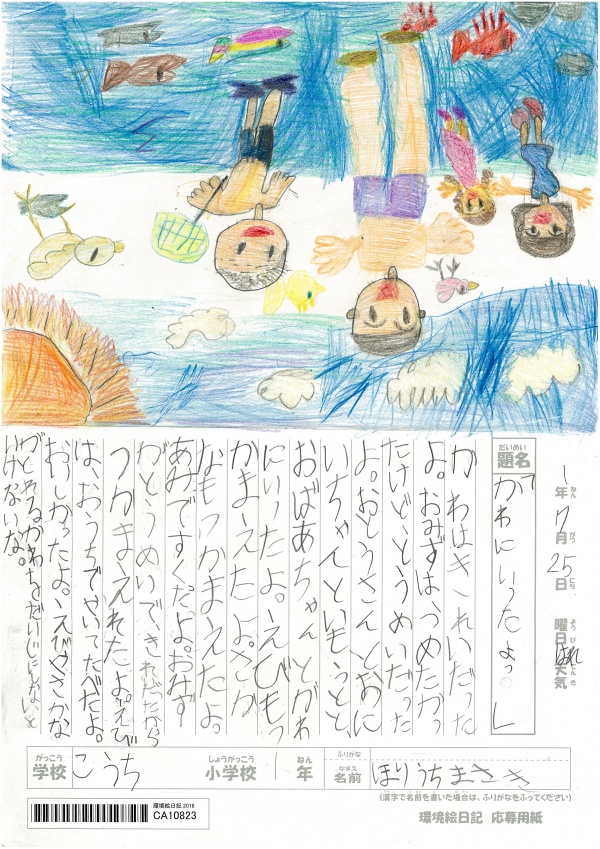 1年7月25日 曜日 天気 はれ
ねん がつ にち ようび てんき
だいめい
題名「かわにいったよ。」
かわはきれいだった
よ。おみずはつめたかっ
たけど、とうめいだった
よ。おとうさんとおに
いちゃんといもうとと、
おばあちゃんとかわ
にいったよ。えびもつ
かまえたよ。さか
なもつかまえたよ。
あみですくたよ。おみず
がとうめいで、きれだったから
つかまえれたよ。えび
は、おうちでやいてたべたよ。
おいしかったよ。えびやさかな
がとれるかわをだいじにしないと
いけないな。
がっこう しょうがっこう ねん ふりがな
学校 こうち 小学校 1年 なまえ 名前 ほりうちまさき
(漢字で名前を書いた場合は、ふりがなをふってください)
環境絵日記2018
CA10823
環境絵日記 応募用紙